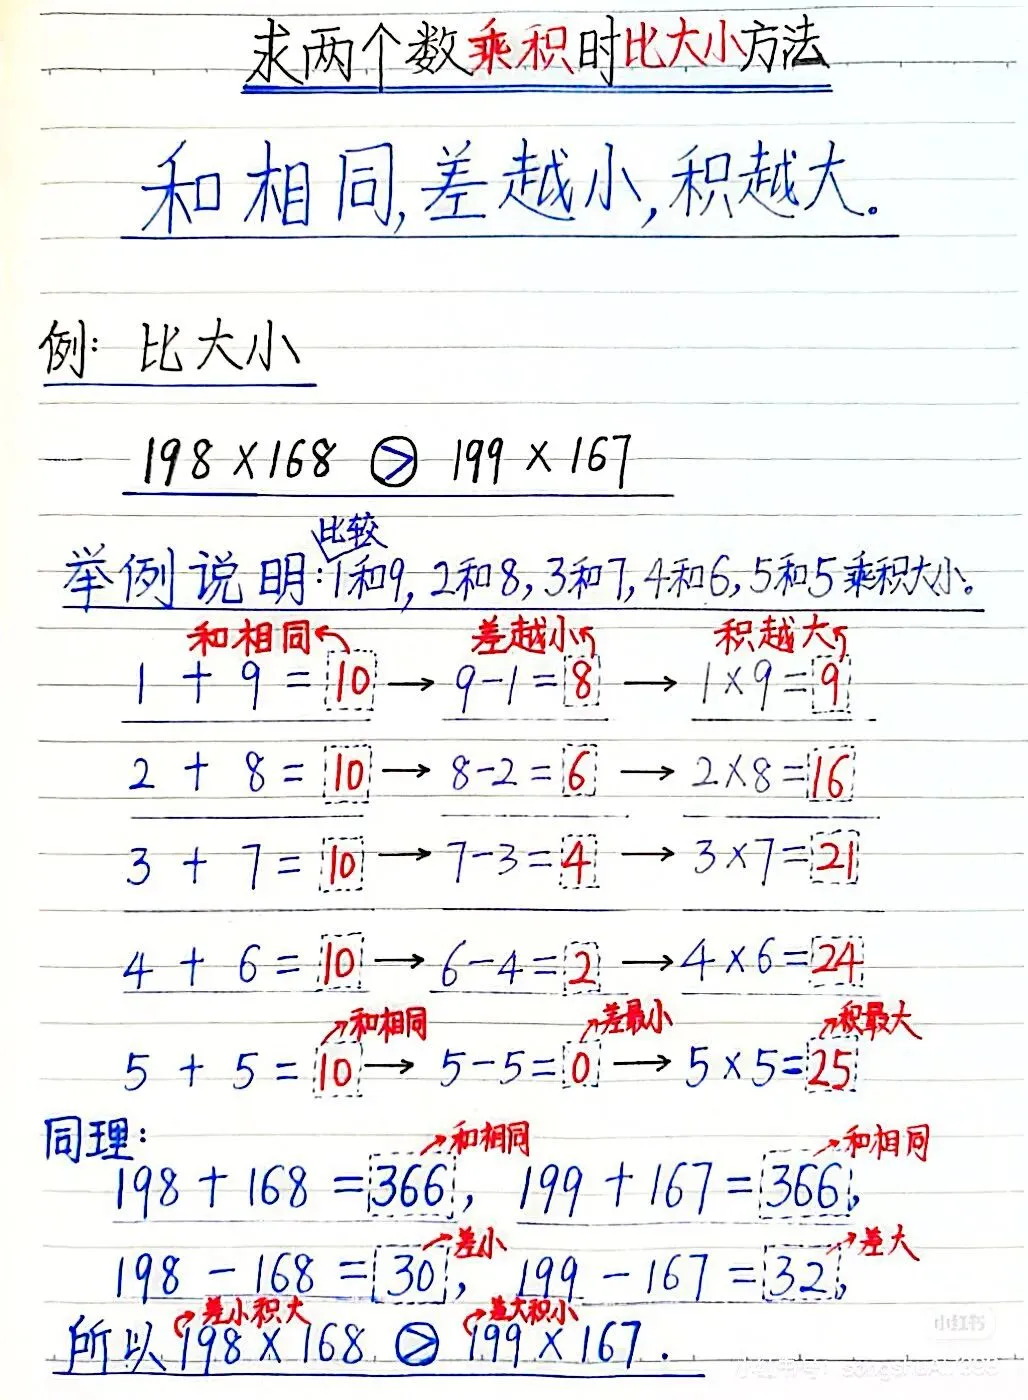 求两个数乘积时比大小方法
和相同,差越小,积越大。
例: 比大小
198×168 > 199×167
比较
举例说明:1和9,2和8,3和7,4和6,5和5乘积大小。
和相同 差越小 积越大
1 + 9 = 10 → 9-1=8 → 1×9=9
2 + 8 = 10 → 8-2=6 → 2×8=16
3 + 7 = 10 → 7-3=4 → 3×7=21
4 + 6 = 10 → 6-4=2 → 4×6=24
和相同 差最小 积最大
5 + 5 = 10 → 5-5=0 → 5×5=25
同理:
和相同 和相同
198+168=366, 199+167=366,
差小 差大
198-168=30, 199-167=32,
差小积大 差大积小
所以 198×168 > 199×167.
小红书